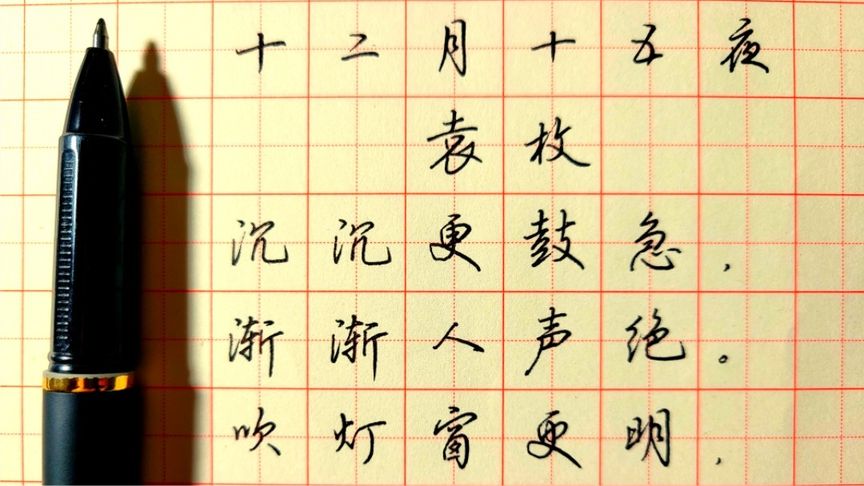 十二月十五夜
袁枚
沉沉更鼓急，
渐渐人声绝。
吹灯窗更明，